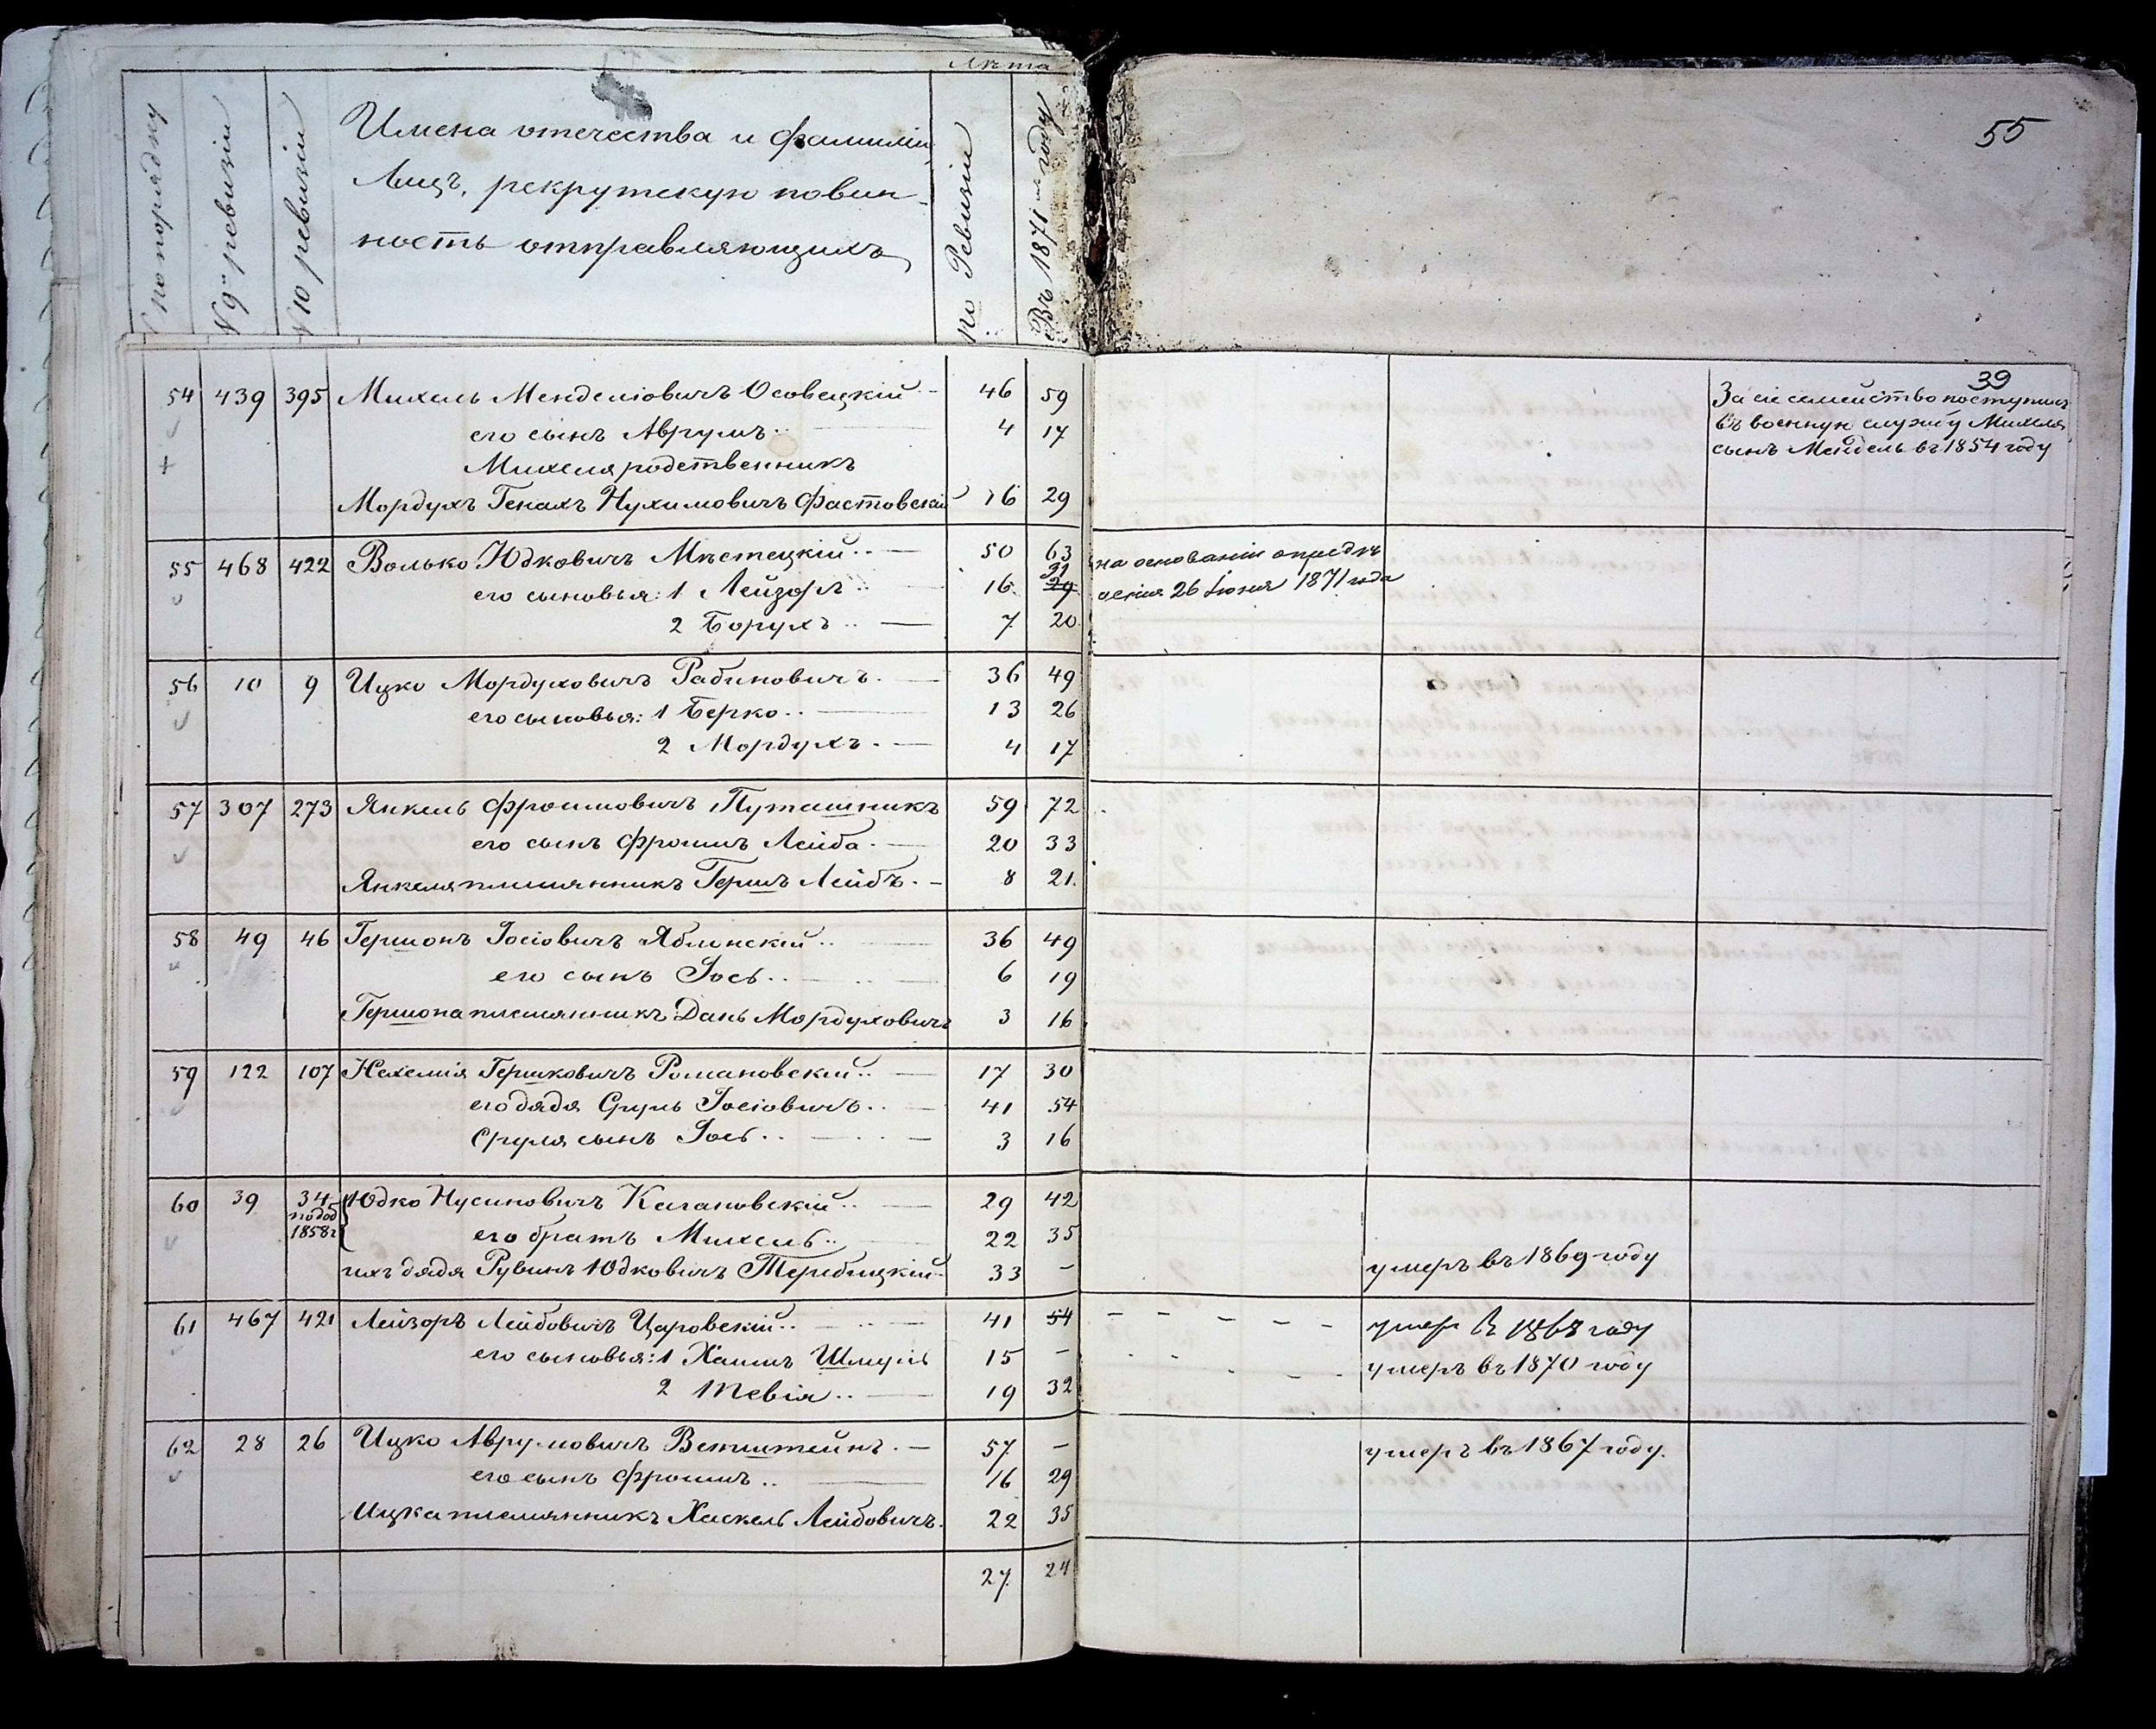 Лѣта
№ по порядку
№ 9й ревизіи
№ 10 ревизіи
Имена отечества и фамиліи
Лицъ, рекрутскую повин-
ность отправляющихъ
по Ревизіи
Въ 1871м году
55
39
54 439 395 Михель Менделіовичъ Осовецкій 46 59
его сынъ Аврумъ 4 17
Михеля родственникъ
Мордухъ Генахъ Нухимовичъ Фастовскій 16 29
За сіе семейство поступилъ
въ военную службу Михеля
сынъ Мендель въ 1854 году
55 468 422 Волько Юдковичъ Мѣстецкій 50 63
31
его сыновья: 1 Лейзоръ 16 29
2 Борухъ 7 20
на основаніи опредѣ
ленія 26 Іюня 1871 года
56 10 9 Ицко Мордуховичъ Рабиновичъ 36 49
его сыновья: 1 Берко 13 26
2 Мордухъ 4 17
57 307 273 Янкель Фроимовичъ Путашникъ 59 72
его сынъ Фроимъ Лейба 20 33
Янкеля племянникъ Гершъ Лейбъ 8 21
58 49 46 Гершонъ Іосіовичъ Яблонскій 36 49
его сынъ Іось 6 19
Гершона племянникъ Данъ Мордуховичъ 3 16
59 122 107 Нехемія Гершковичъ Романовскій 17 30
его дядя Сруль Іосіовичъ 41 54
Сруля сынъ Іось 3 16
60 39 34 Юдко Нусиновичъ Кагановскій 29 42
по доб
1858 г
его братъ Михель 22 35
ихъ дядя Рувинъ Юдковичъ Теребицкій 33 – умеръ въ 1869 году
61 467 421 Лейзоръ Лейбовичъ Царовскій 41 54 – – – – – умеръ въ 1868 году
его сыновья: 1 Хаимъ Шмуль 15 – умеръ въ 1870 году
2 Тевія 19 32
62 28 26 Ицко Аврумовичъ Векштейнъ 57 – умеръ въ 1867 году.
его сынъ Фроимъ 16 29
Ицка племянникъ Хаскель Лейбовичъ 22 35
27 24